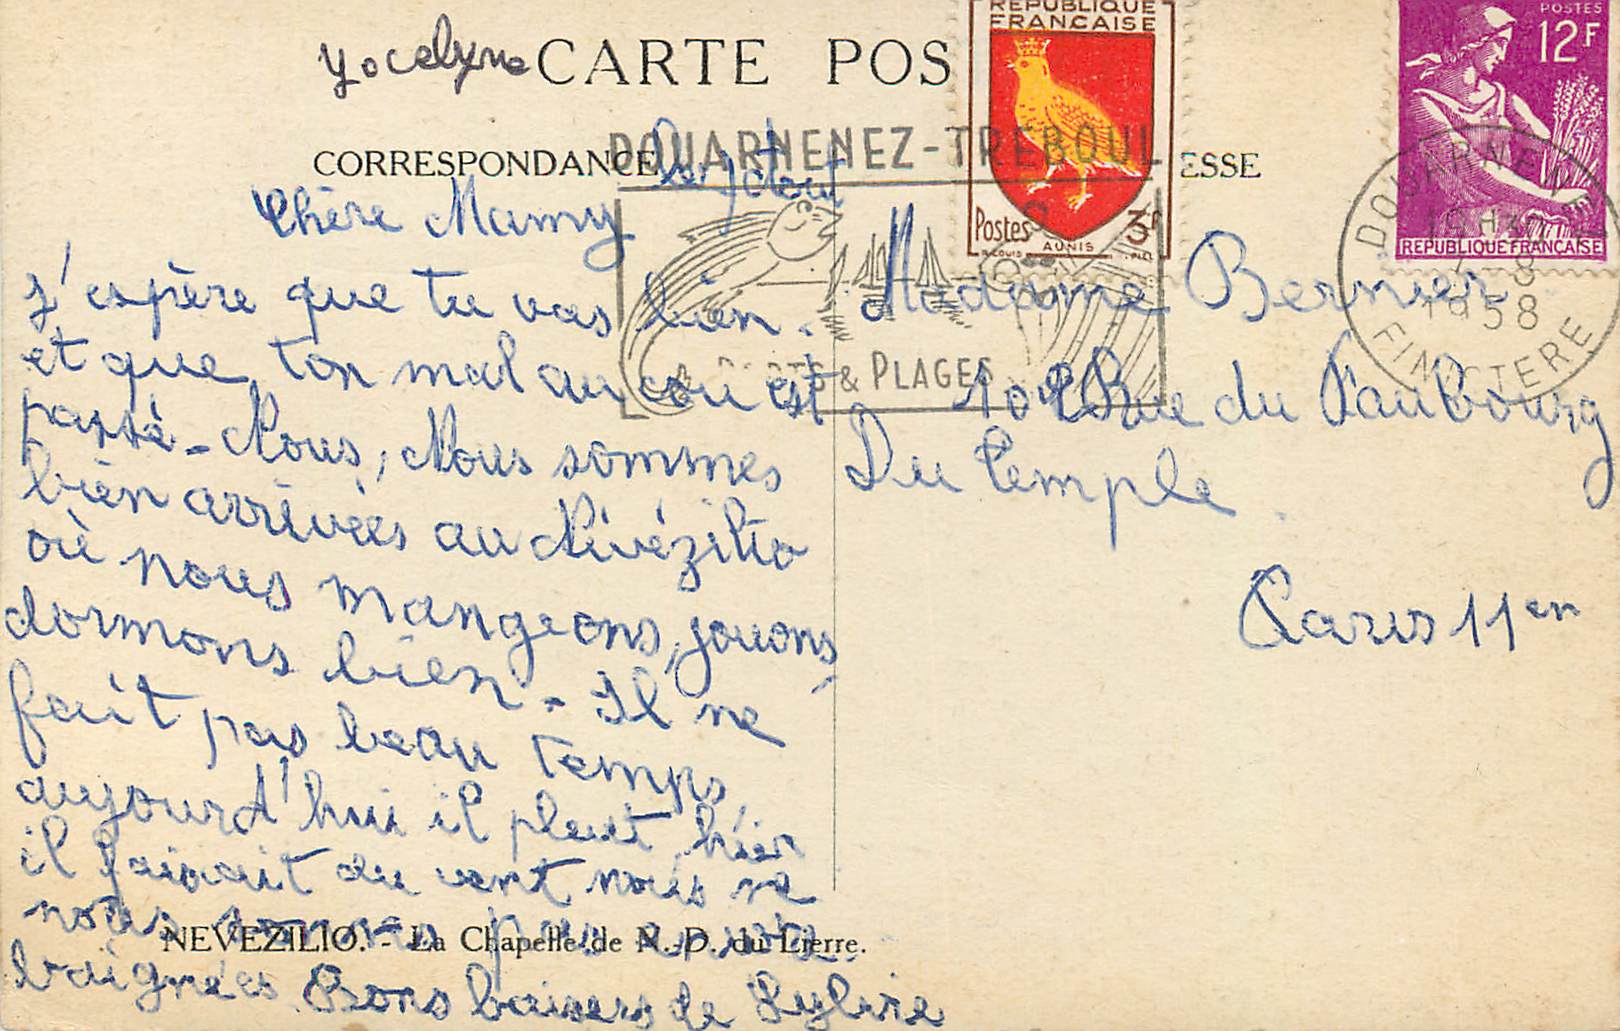 Yocelyne
CARTE POS
REPUBLIQUE
FRANÇAISE
POSTES
12F
DOUARNENEZ-TREBOUL
CORRESPONDANCE
ESSE
Postes
3F
AUNIS
REPUBLIQUE FRANÇAISE
DOUARNENEZ
19H30
8
1958
FINISTERE
PORTS & PLAGES
le 7 Août
Chère Mamy
j'espère que tu vas bien.
et que ton mal au cou est
passé - Nous, Nous sommes
bien arrivées au Névézilio
où nous mangeons, jouons
dormons bien - Il ne
fait pas beau temps,
aujourd'hui il pleut, hier
il faisait du vent nous ne
nous sommes pas encore
baignées Bons baisers de Sylvie
Madame Bernier
Rue du Faubourg
Du Temple
Paris 11en
NEVEZILIO. - La Chapelle de N.-D. du Lierre.